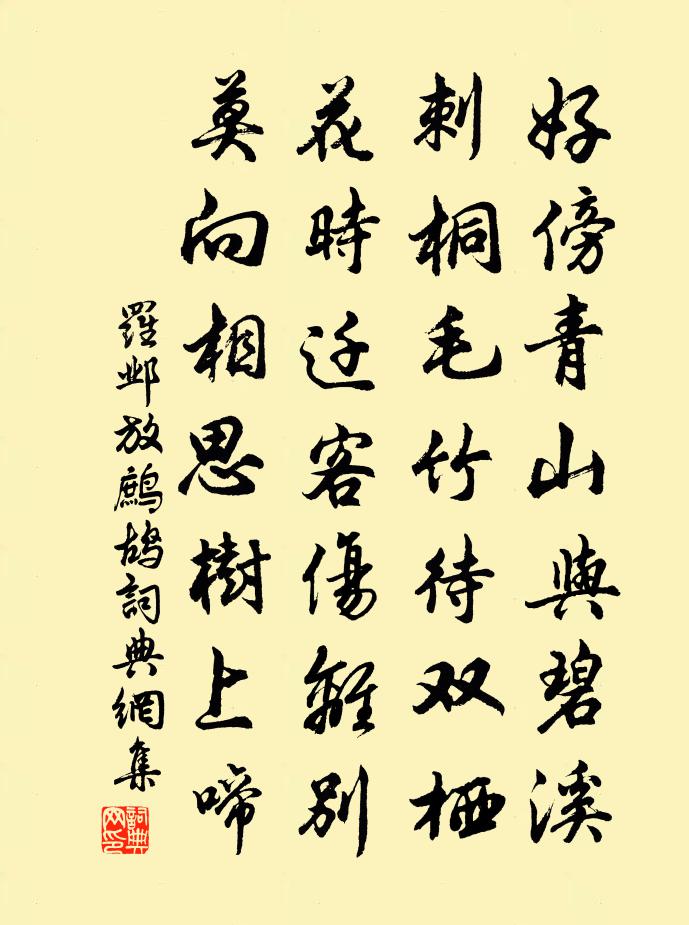 好傍青山與碧溪
刺桐毛竹待双栖
花時迁客傷離別
莫向相思樹上啼
羅鄴放鷓鴣詞典網集
詞典网印